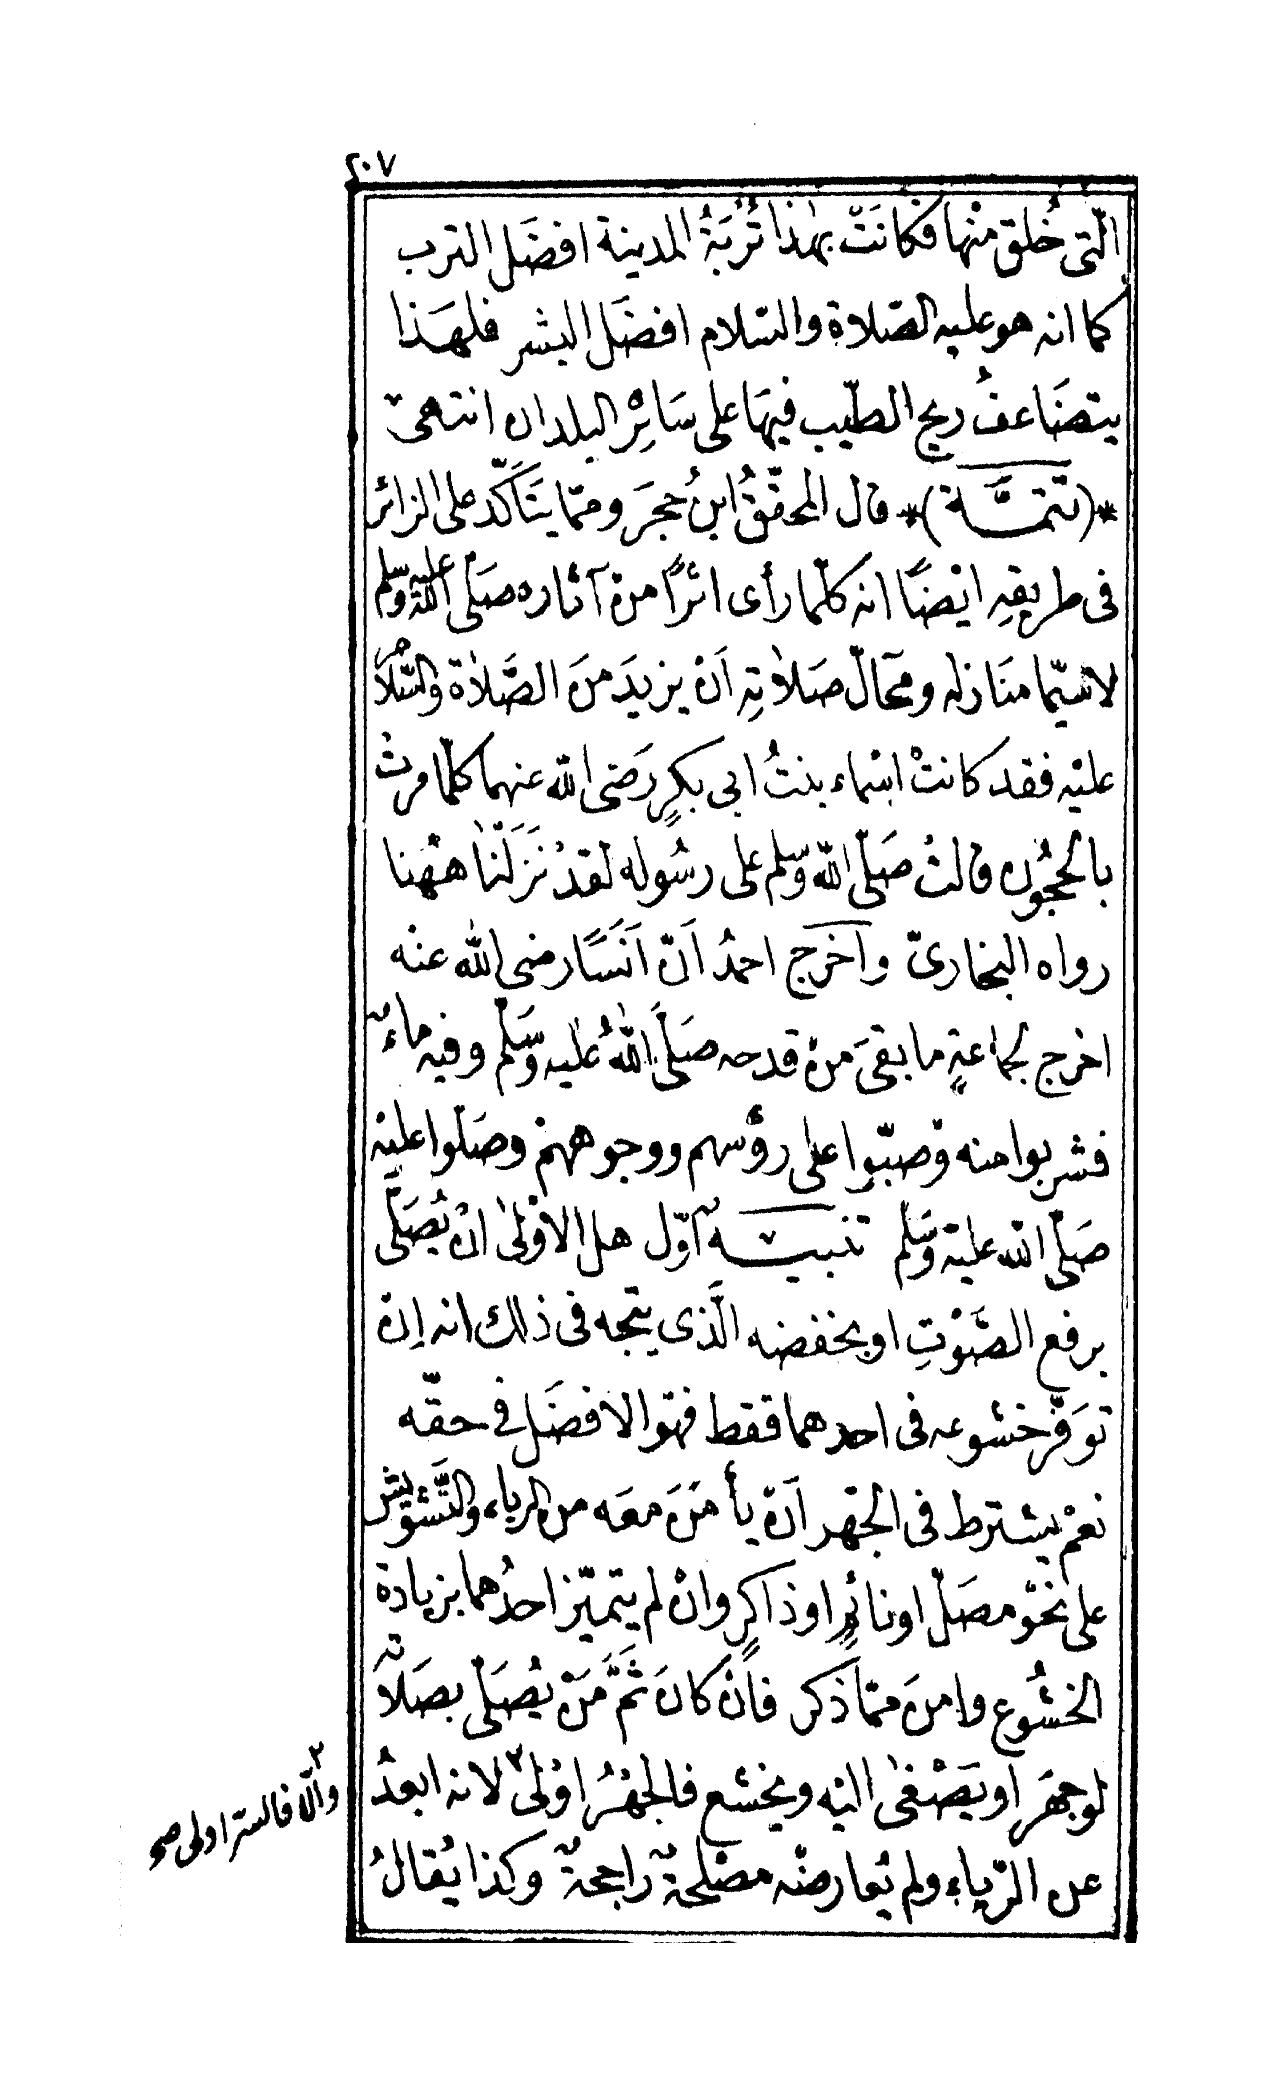 ٢٠٧
الّتى خُلق منْها فكانَتْ بهٰذا تُرْبَةُ المدينة افضَل الترب
كما انه هو عليه الصّلاة والسّلام افضَل البشر فلهَذا
يتضَاعفُ ريح الطّيب فيهَا على سَائِرْ البلدان انتهىٰ
*(تتمَّة)* قال المحقّقُ ابنُ حجرَ وممّا يتَأكّد على الزائر
فى طريقهِ ايْضًا انه كلّما رأى اثرًا منْ آثاره صَلّى اللّه عليه وسلم
لاسيّما منَازله ومحَالّ صَلاته اَنْ يزيدَ منَ الصَّلاة والسَّلام
عليْه فقد كانتْ اسْماء بنتُ ابى بكرٍ رَضى اللّه عنهما كلّما مرتْ
بالحجُون قالتْ صَلّى اللّه وسّلم على رسُوله لقدْ نَزَلْنَا ههُنا
رواه البخارىّ وآخرج احمدُ اَنّ اَنَسًا رضى اللّه عنْه
اخرج لجماعةٍ ما بقىَ منْ قدحه صَلّى اللّهُ عليه وسَّلم وفيه ماءٌ
فشربوا منه وصبّوا على رؤسهم ووجوههمْ وصَلّوا عليْه
صَلّى اللّه عليه وسَّلم تنبيه اوّل هل الاوْلىٰ انْ يُصَلَّى
برفع الصَّوْتِ او بخفضه الَّذى يتّجه فى ذلك انه إنْ
توَفّر خشوعه فى احدهما فقط فهْو الافضَل فى حقّه
نعمْ يشترط فى الجهْر اَنْ يأمَنَ معَه من الرياء والتَّشويش
على نحْو مصَلّ او نائمٍ او ذاكرٍ وانْ لم يتميّز احدُهما بزيادة
الخشُوع وامنَ ممّا ذكر فانْ كانَ ثَمَّ مَنْ يُصَلّى بصَلاته
لو جهَر او يَصْغىٰ اليْه ويخشع فالجهْرُ اوْلىٰ ٢ لانه ابعدُ
عن الرّياء ولم يُعارضْه مصْلحةٌ راجحةٌ وكذا يُقالُ
٢ والّا فالستر اولى صح